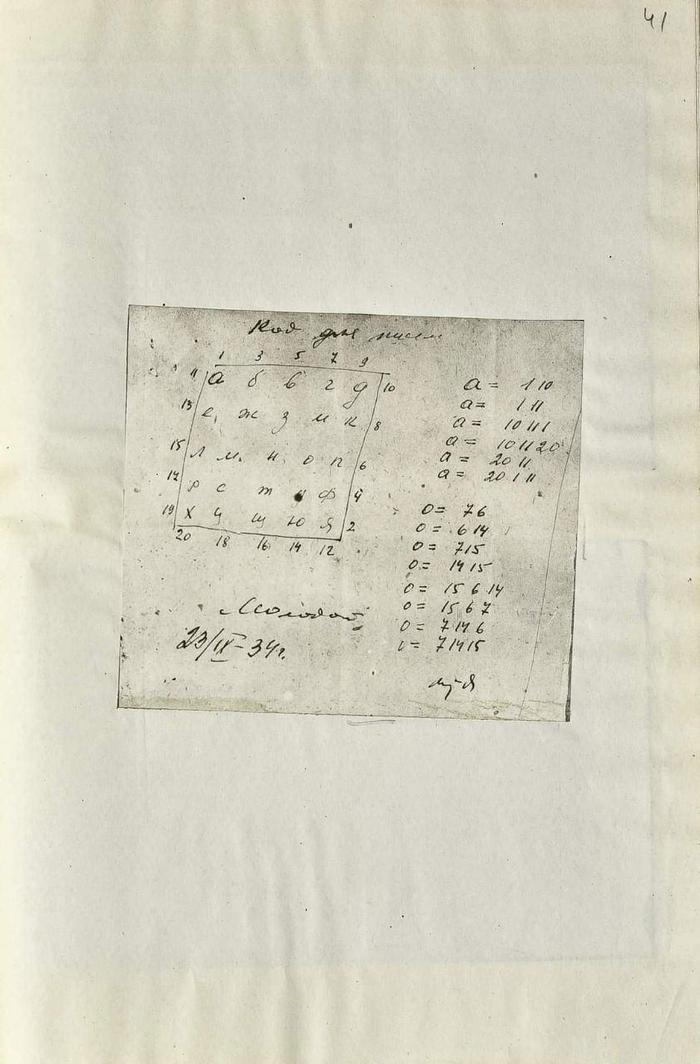 41
Код для писем
1 3 5 7 9
11 а б в г д 10
13 е ж з и к 8
15 л м н о п 6
17 р с т у ф 4
19 х ц щ ю я 2
20 18 16 14 12
а = 1 10
а = 1 11
а = 10 11 1
а = 10 11 20
а = 20 11
а = 20 1 11
о = 7 6
о = 6 14
о = 7 15
о = 14 15
о = 15 6 14
о = 15 6 7
о = 7 14 6
о = 7 14 15
Молодой
23/IX-34г.